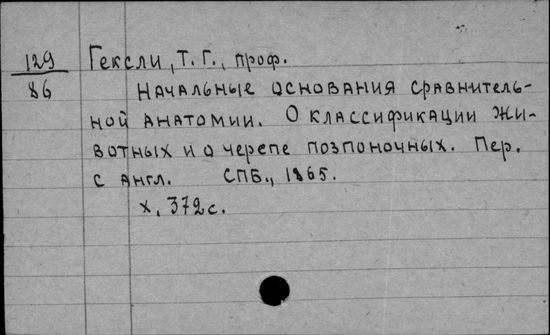 129 Гексли, Т. Г., проф.
86 Начальные основания сравнитель-
ной анатомии. О классификации жи-
вотных и о черепе позпоночных. Пер.
с англ. СПБ., 1865.
X, 372 с.